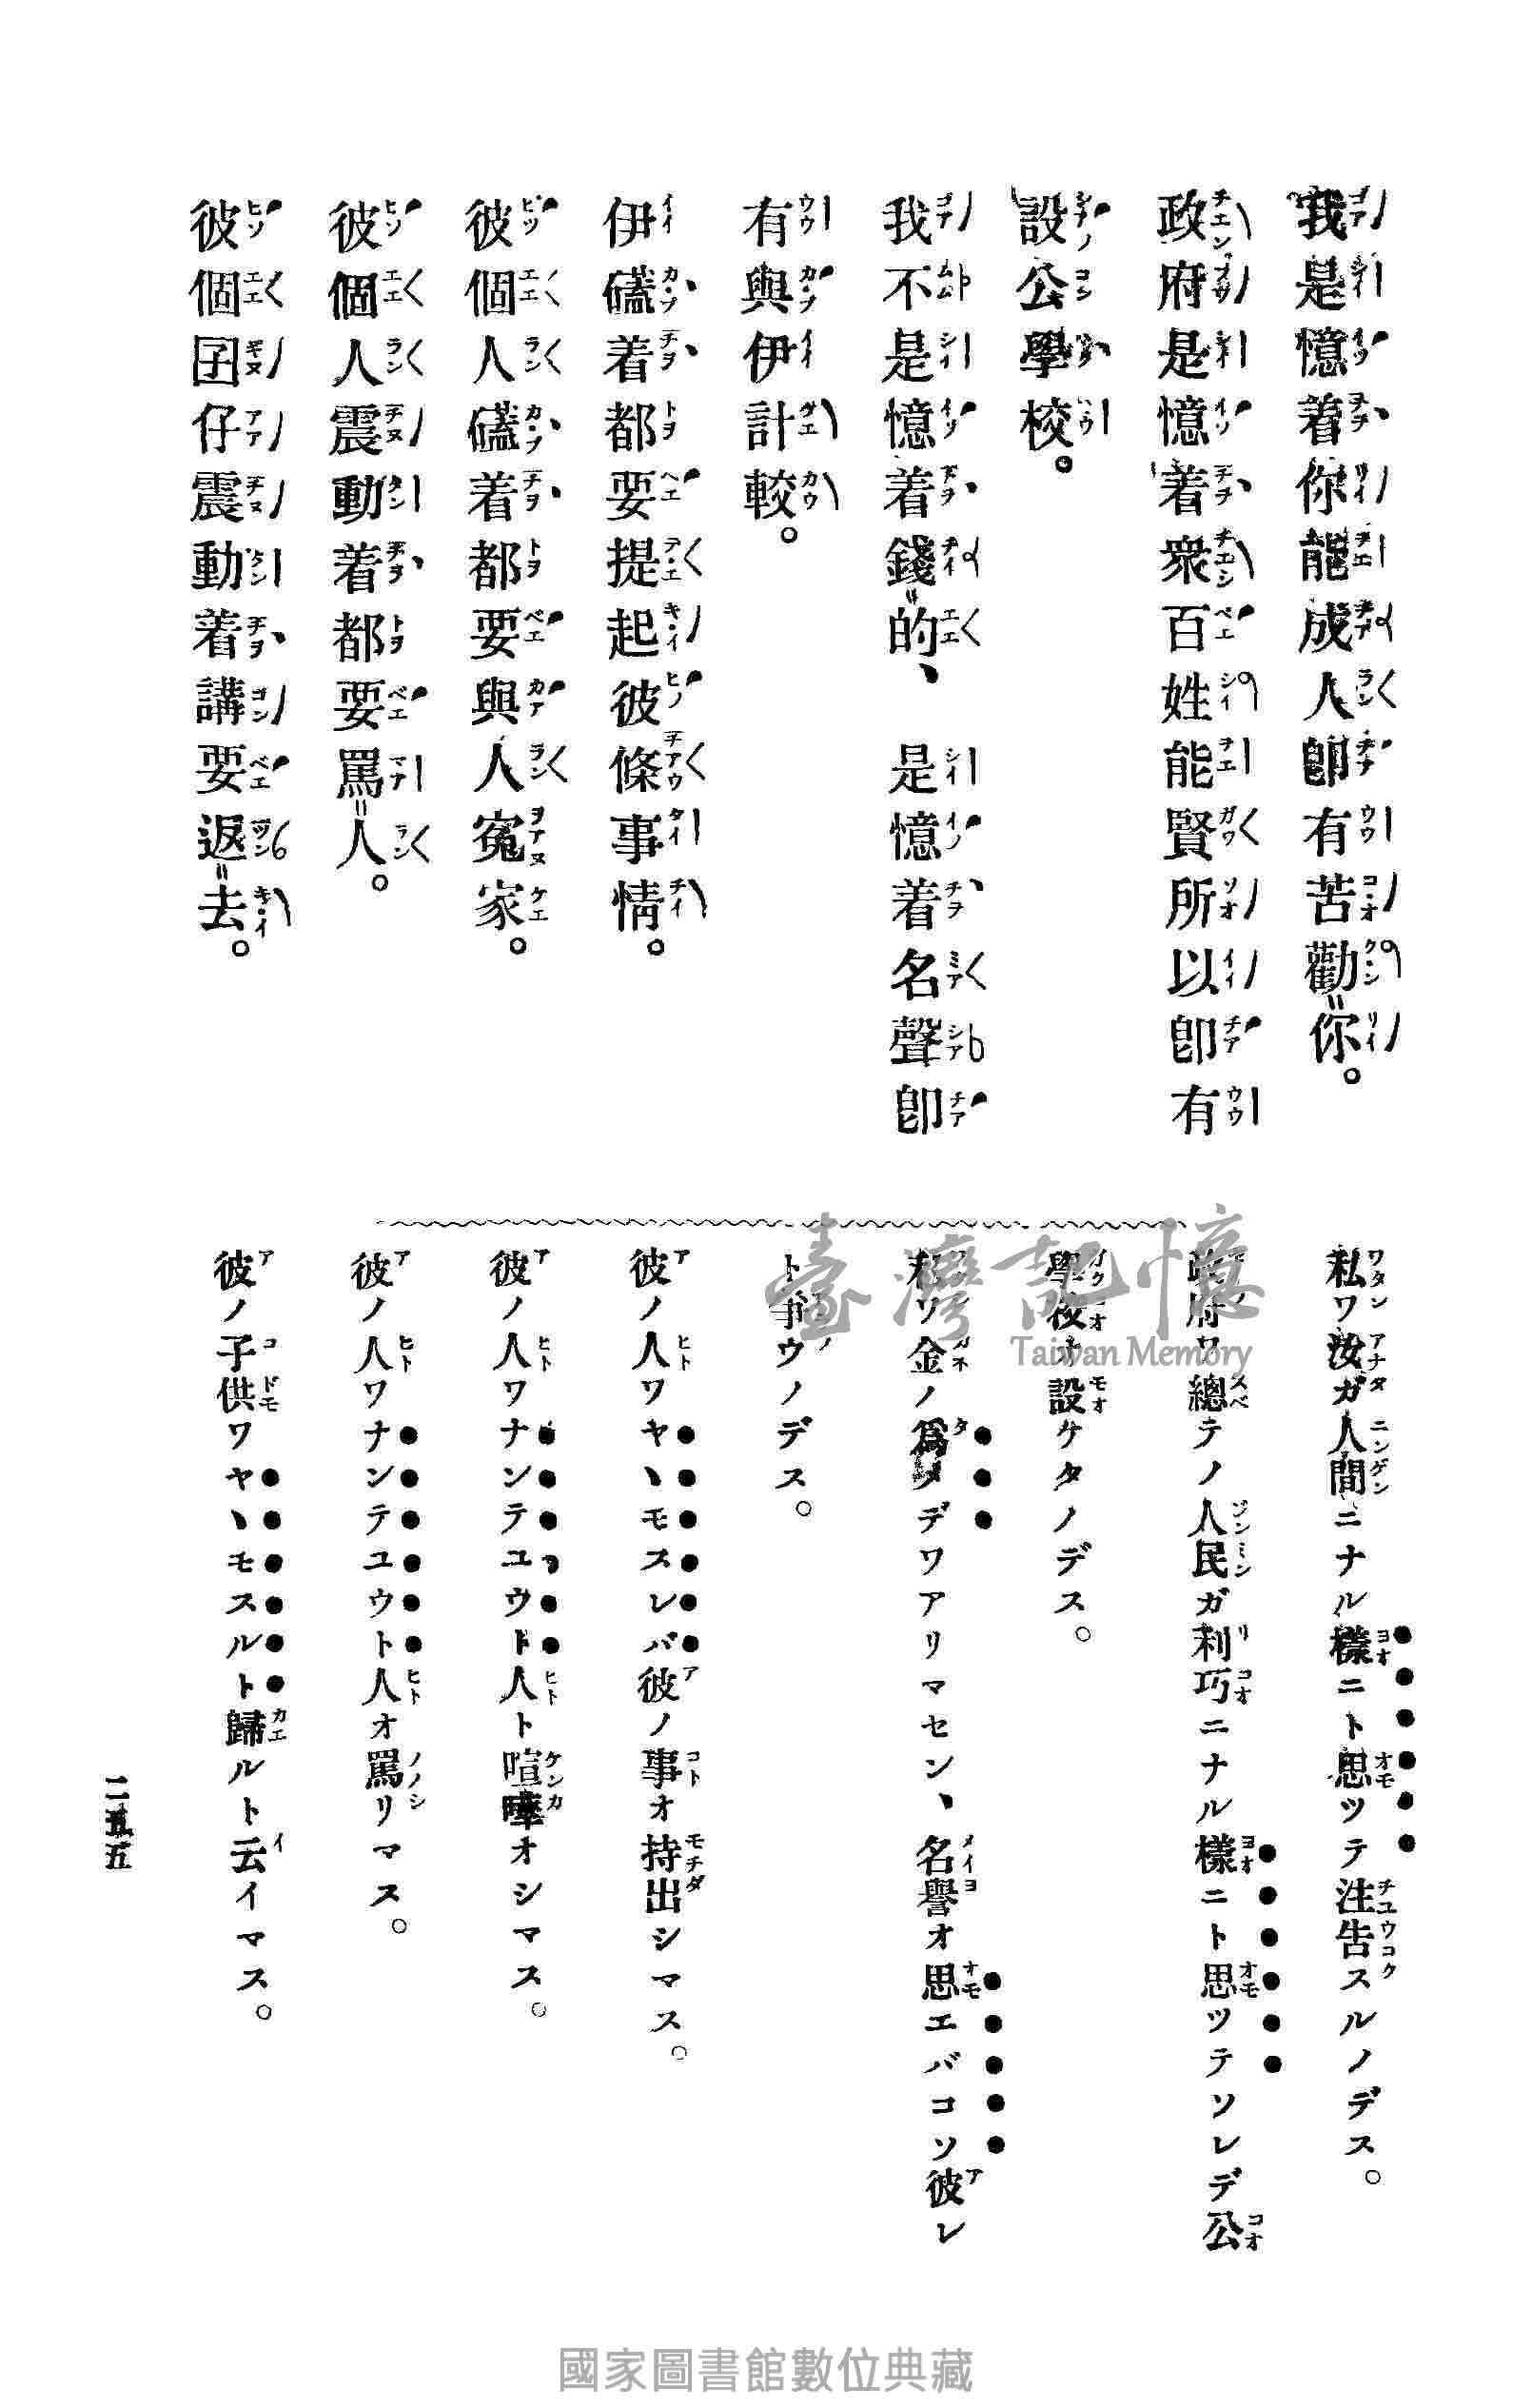 我是憶着你能成人卽有苦勸你。
政府是憶着衆百姓能賢所以卽有
設公學校。
我不是憶着錢的、是憶着名聲卽
有與伊計較。
伊礚着都要提起彼條事情。
彼個人礚着都要與人寃家。
彼個人震動着都要罵人。
彼個囝仔震動着講要返去。
私ワ汝ガ人間ニナル樣ニト思ツテ注吿スルノデス。
政府ワ總テノ人民ガ利巧ニナル樣ニト思ツテソレデ公
學校オ設ケタノデス。
私ワ金ノ爲メデワアリマセン、名譽オ思エバコソ彼レ
ト爭ウノデス。
彼ノ人ワヤヽモスレバ彼ノ事オ持出シマス。
彼ノ人ワナンテユウト人ト喧嘩オシマス。
彼ノ人ワナンテユウト人オ罵リマス。
彼ノ子供ワヤヽモスルト歸ルト云イマス。
二五五
臺灣記憶
Taiwan Memory
國家圖書館數位典藏